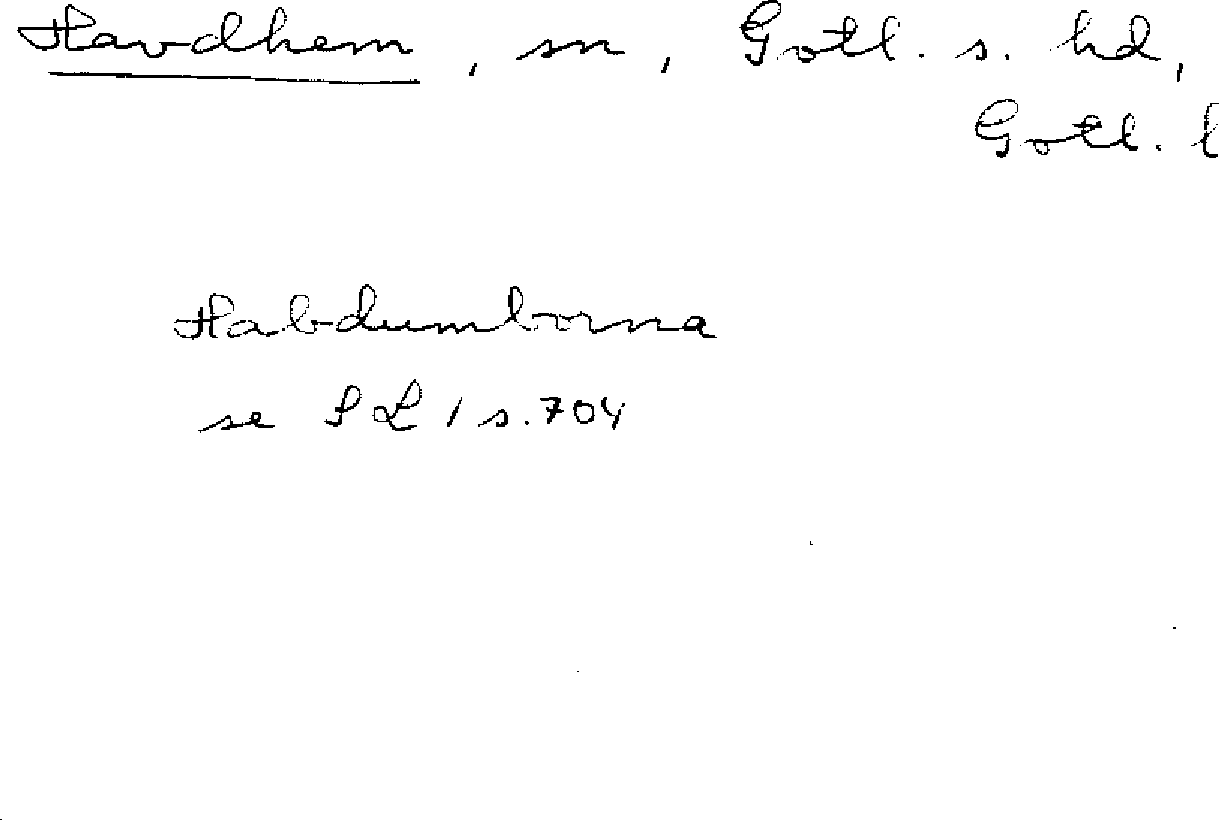 Havdhem, sn, Gotl. s. hd,
Gotl. l
Habdumborna
se PL 1 s. 704